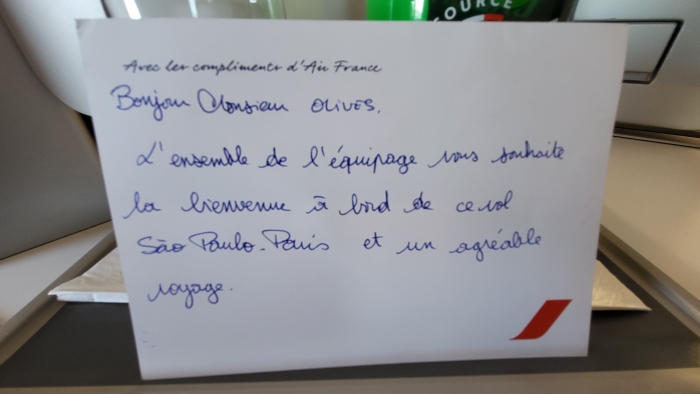 OURCE
Avec les compliments d'Air France
Bonjour Monsieur OLIVES,
L'ensemble de l'équipage vous souhaite
la bienvenue à bord de ce vol
São Paulo-Paris et un agréable
voyage.